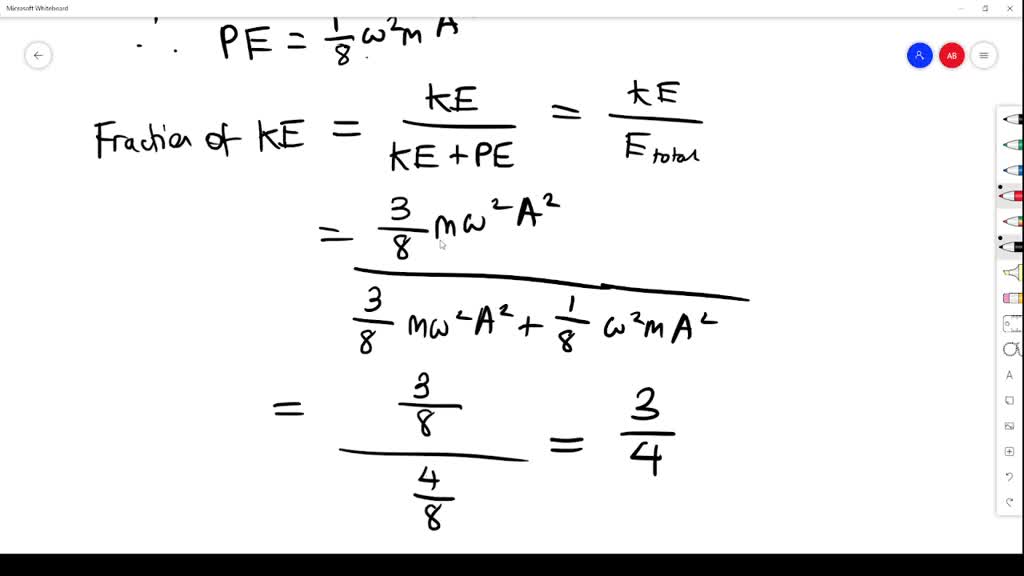 Microsoft Whiteboard
∴ PE = 1/8 ω²m A
AB
Fraction of KE = KE / (KE + PE) = KE / E total
= (3/8 mω²A²) / (3/8 mω²A² + 1/8 ω²mA²)
= (3/8) / (4/8) = 3/4
A